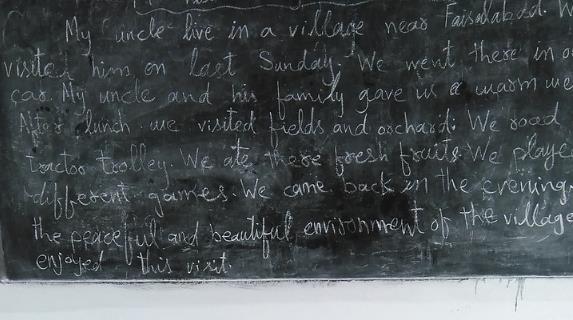 My uncle live in a village near Faisalabad. W
visited him on last Sunday. We went there in o
car. My uncle and his family gave us a warm we
After lunch we visited fields and orchard: We road
tractor trolley. We ate there fresh fruits. We playe
different games. We came back in the evening.
the peaceful and beautiful environment of the village
enjoyed this visit.